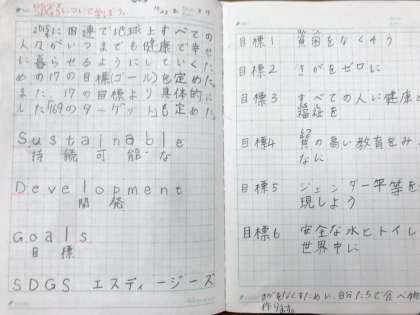 について学ぼう。
に国連で地球上すべての
人々がいつまでも健康で幸せ
に暮らせるようにしていくた
めの17の目標(ゴール)を定めた。
また、17の目標より具体的に
した「169のターゲット」も定めた。
Sustainable
持続可能な
Development
開発
Goals
目標
SDGS エスディージーズ
目標1 貧困をなくそう
目標2 きがをゼロに
目標3 すべての人に健康と
福祉を
目標4 質の高い教育をみ
なに
目標5 ジェンダー平等を
現しよう
目標6 安全な水とトイレ
世界中に
自分たちで食べ物
作ります。